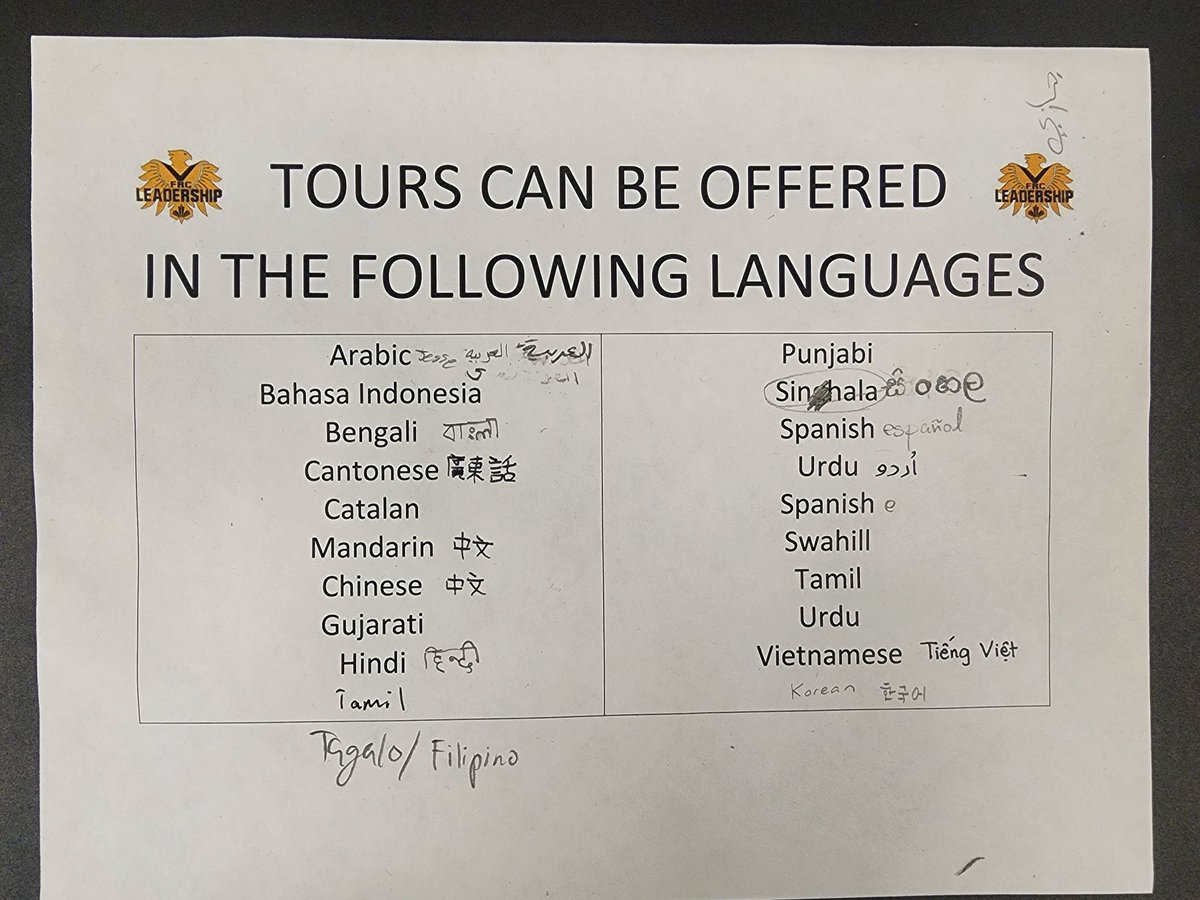 FRC
LEADERSHIP
TOURS CAN BE OFFERED
FRC
LEADERSHIP
IN THE FOLLOWING LANGUAGES
Arabic العربية العربية
Bahasa Indonesia
Bengali বাংলা
Cantonese 廣東話
Catalan
Mandarin 中文
Chinese 中文
Gujarati
Hindi हिन्दी
Tamil
Punjabi
Sinhala සිංහල
Spanish español
Urdu اُردو
Spanish e
Swahill
Tamil
Urdu
Vietnamese Tiếng Việt
Korean 한국어
Tagalo/ Filipino